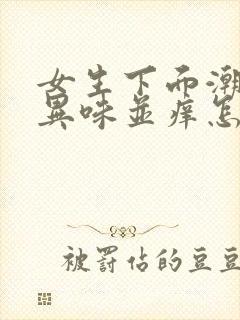 女生下而潮
異味並痒怎
被罰站的豆豆